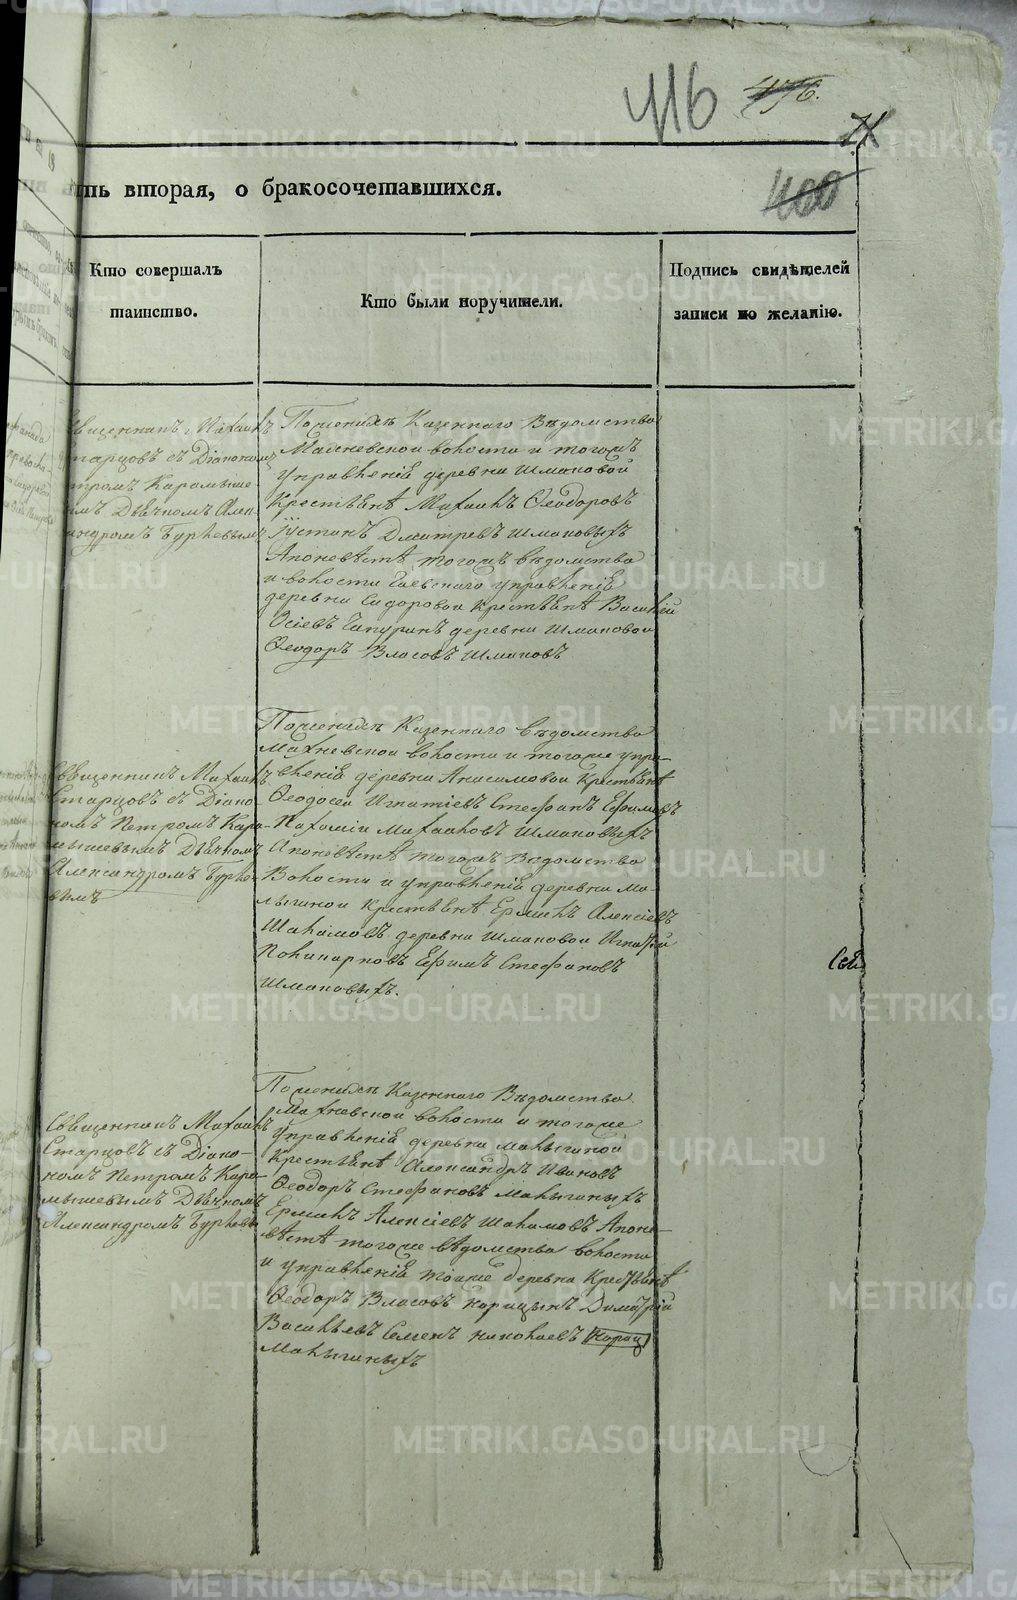 416
476.
71
400
ть вторая, о бракосочетавшихся.
Кто совершалъ
таинство.
Кто были поручители.
Подпись свидѣтелей
записи по желанію.
Священникъ Михаилъ
Старцовъ съ Діакономъ
Петромъ Карамыше-
вымъ Дьячкомъ Алек-
сандромъ Бурчевымъ
По женихѣ Казеннаго Вѣдомства
Махневской волости и тогожъ
Управленія деревни Шмаковой
Крестьянѣ Михаилъ Ѳеодоровъ
Іустинъ Дмитревъ Шмаковыхъ
А по невѣстѣ тогожъ вѣдомства
и волости Гаевскаго управленія
деревни Сидоровой крестьянѣ Василій
Осіевъ деревни Шмаковой
Ѳеодоръ Власовъ Шмаковъ
Священникъ Михаилъ
Старцовъ съ Діако-
номъ Петромъ Кара-
мышевымъ Дьячкомъ
Александромъ Бурче-
вымъ
По женихѣ Казеннаго вѣдомства
Махневской волости и тогоже упра-
вленія деревни Анисимовой крестьянѣ
Ѳеодосей Игнатіевъ Стефанъ Ефимовъ
Пахомій Михаиловъ Шмаковыхъ
А по невѣстѣ тогожъ Вѣдомства
Волости и управленія деревни Ма-
лыгиной крестьянѣ Ермилъ Алексіевъ
Шаламовъ деревни Шмаковой Игнатій
Поликарповъ Ефимъ Стефановъ
Шмаковыхъ.
Священникъ Михаилъ
Старцовъ съ Діако-
номъ Петромъ Кара-
мышевымъ Дьячкомъ
Александромъ Бурчевы
По женихѣ Казеннаго Вѣдомства
Махневской волости и тогоже
Управленія деревни Малыгиной
Крестьянѣ Александръ Ивановъ
Ѳеодоръ Стефановъ Малыгиныхъ
Ермилъ Алексіевъ Шаламовъ А по не-
вѣстѣ тогоже вѣдомства волости
и управленія тояже деревни Крестьянѣ
Ѳеодоръ Власовъ Димитрій
Васильевъ Семенъ Николаевъ
Малыгиныхъ
METRIKI.GASO-URAL.RU